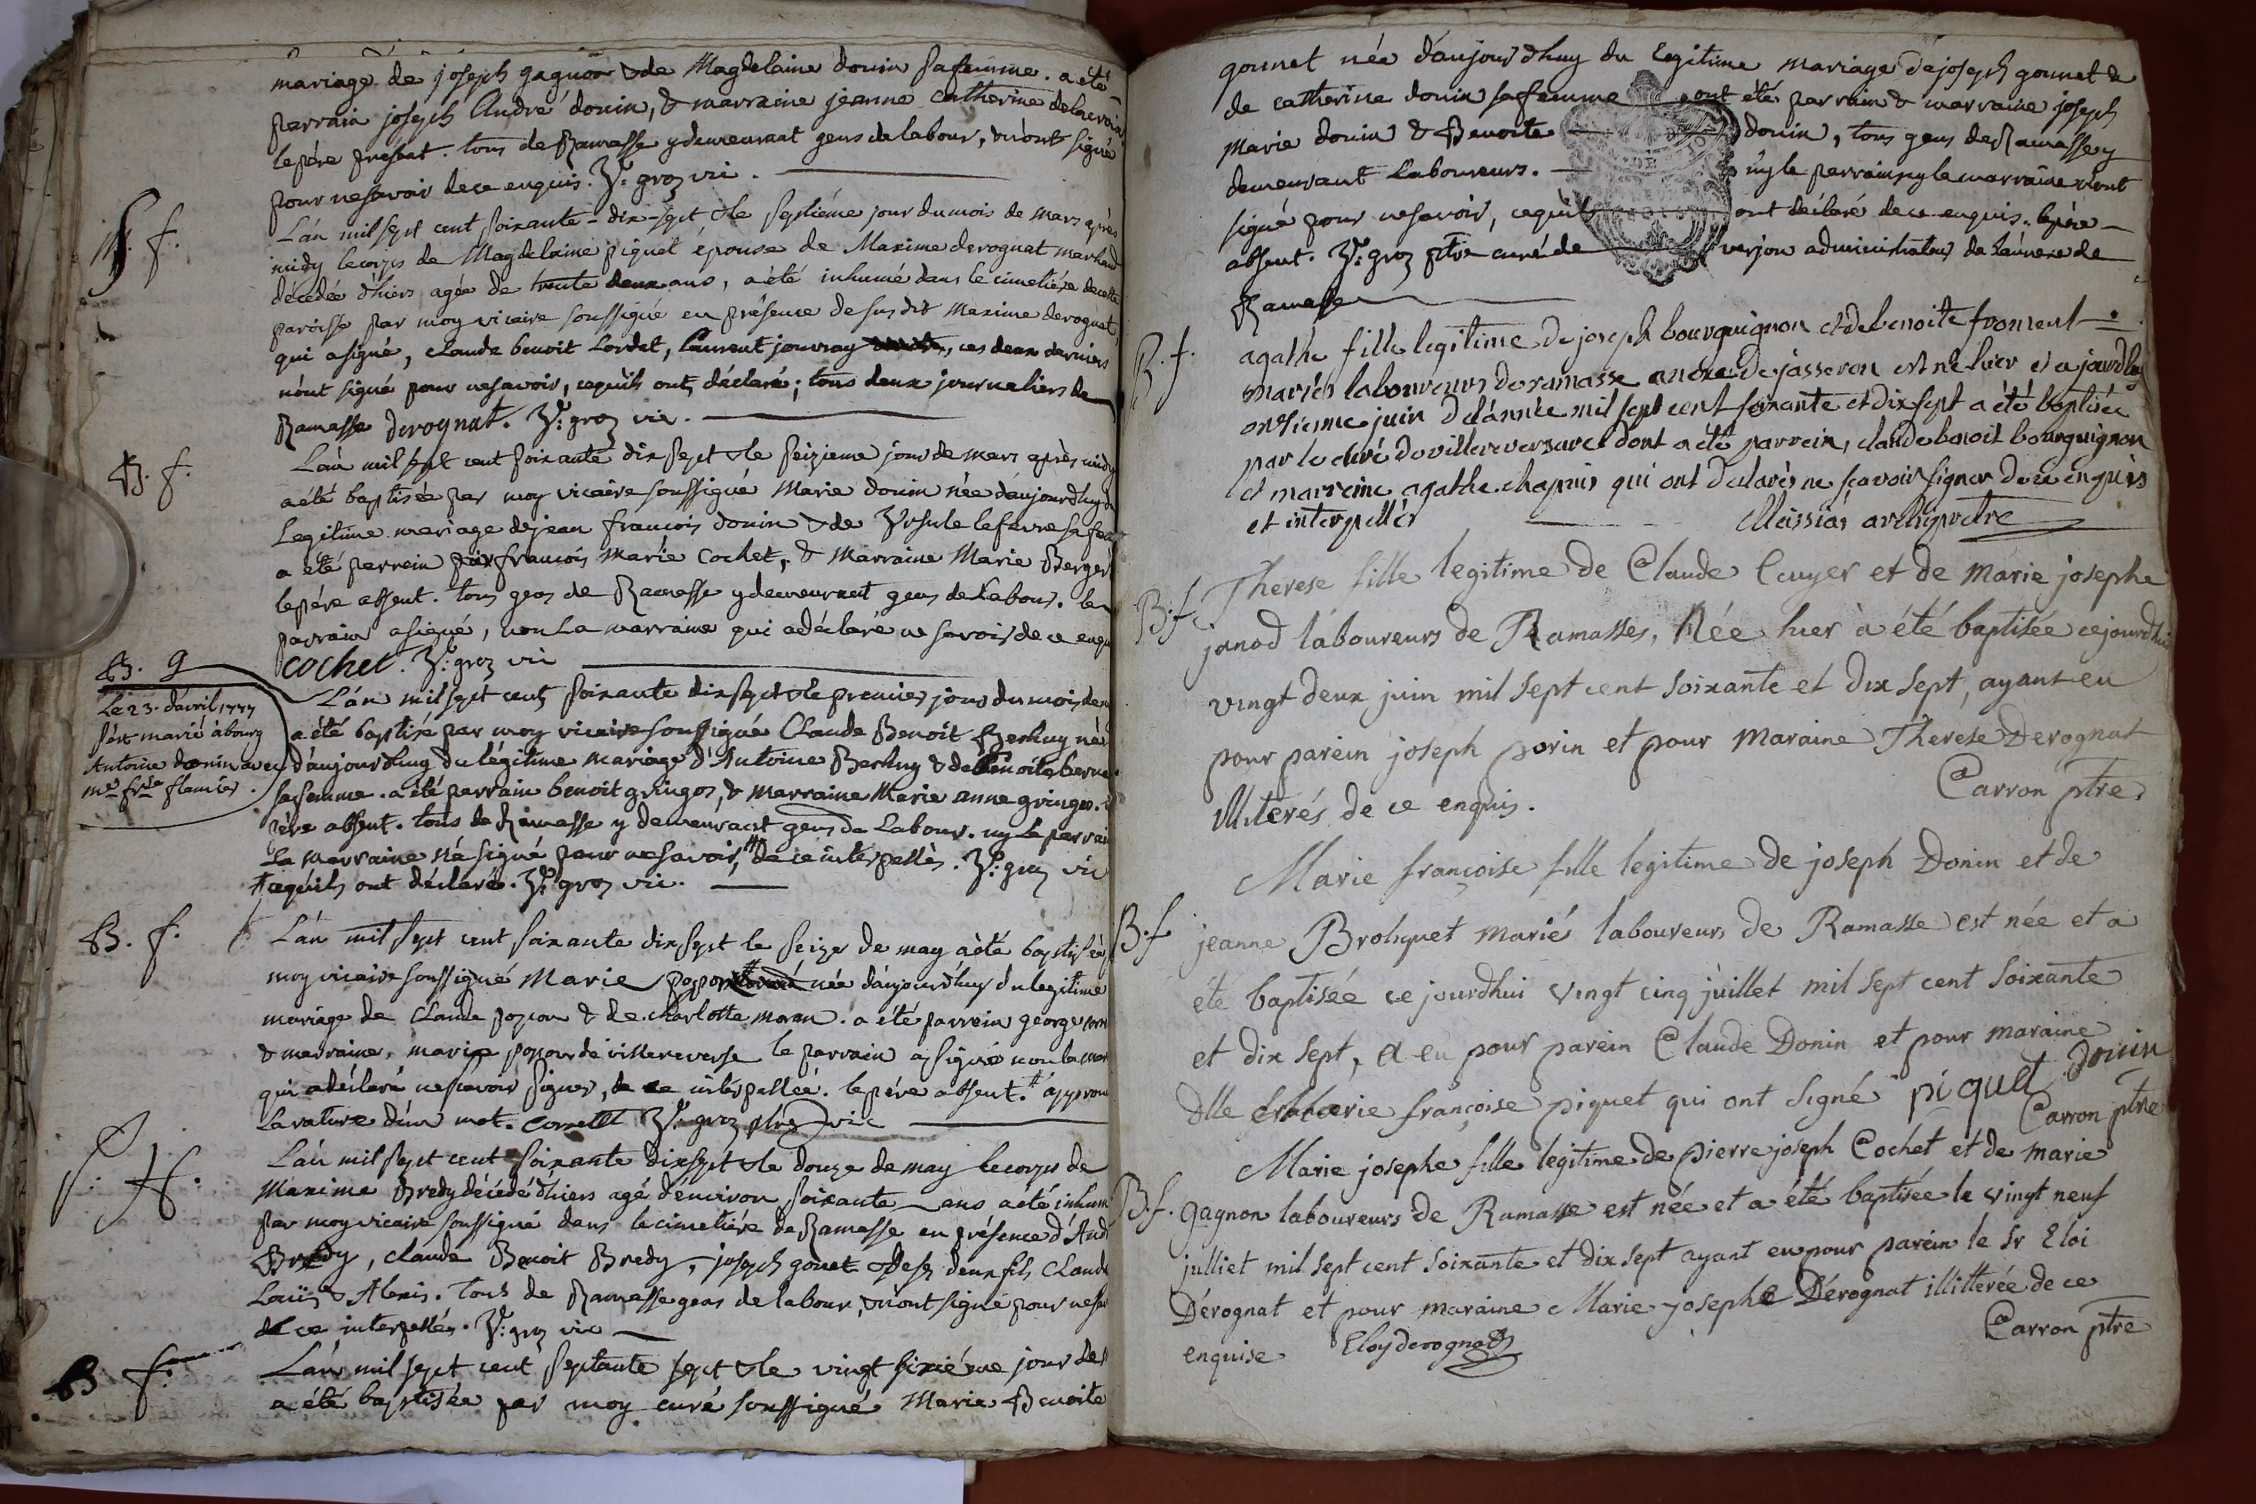 mariage de joseph gagnon & de Magdelaine donin sa femme. a été
parrain joseph André donin, & marraine jeanne catherine
le père présent. tous de Ramasse y demeurant gens de labour, n'ont signé
pour ne savoir de ce enquis. groz vic.
S. f.
L'an mil sept cent soixante-dix-sept & le septiéme jour du mois de mars après
midy le corps de Magdelaine piquet épouse de Maxime derognat marchand
décédée d'hiers agée de trente deux ans, a été inhumé dans le cimetiére de cette
paroisse par moy vicaire soussigné en présence de susdit Maxime derognat
qui a signé, claude benoit Cordet, Laurent jouvray, ces deux derniers
n'ont signé pour ne savoir, ce qu'ils ont déclaré; tous deux journaliers de
Ramasse derognat. groz vic.
B. f.
L'an mil sept cent soixante dix sept & le seizieme jour de mars après midy
a été baptisée par moy vicaire soussigné Marie donin née d'aujourdhuy du
Legitime mariage de jean francois donin & de Ursule lefevre sa fe
a été parrein francois marie Cochet, & Marraine Marie Berger
le père absent. tous gens de Ramasse y demeurant gens de Labour. le
parrain a signé, non La marraine qui a déclaré ne savoir de ce enqu
cochet. groz vic
B. g
Le 23. d'avril 1777
s'est marié à bourg
Antoine donin avec
L'an mil sept cent soixante dix sept & le premier jour du mois de
a été baptisé par moy vicaire soussigné Claude Benoit Berhuy né
d'aujourdhuy du légitime mariage d'Antoine Berhuy & de Benoite
sa femme. a été parrain benoit gringos, & marraine Marie anne gringos.
père absent. tous de Ramasse y demeurant gens de Labour. ny le parrai
La marraine n'a signé pour ne savoir, de ce interpellés. groz vic
ce qu'ils ont déclaré. groz vic.
B. f.
L'an mil sept cent soixante dix sept le seize de may a été baptisée p
moy vicaire soussigné Marie popon née d'aujourd'huy du legitime
mariage de Claude popon & de charlotte moran. a été parrein george
& marraine, marie popon de villereverse le parrain a signé non la mar
qui a déclaré ne savoir signer, de ce interpellée. le père absent. approuv
La rature d'un mot. groz ptre vic
S. H.
L'an mil sept cent soixante dix sept & le douze de may le corps de
Maxime Bredy décédé d'hiers agé d'environ soixante ans a été inhum
par moy vicaire soussigné dans le cimetiére de Ramasse en présence d'And
Bredy, claude Benoit Bredy, joseph gonet & ses deux fils Claude
Loüis & Alexis. Tous de Ramasse gens de labour, n'ont signé pour ne sav
de ce interpellés. groz vic
B f.
L'an mil sept cent septante sept & le vingt sixiéme jour de
a été baptisée par moy curé soussigné Marie Benoite
gonnet née d'aujourd'huy du legitime mariage de joseph gonnet &
de catherine donin sa femme ont été parrain & marraine joseph
Marie donin & Benoite donin, tous gens de Ramasse y
demeurant Laboureurs. ny le parrain ny le marraine n'ont
signé pour ne savoir, ce qu'ils ont déclaré de ce enquis. le père
absent. groz ptre curé de verjon administrateur de l'annexe de
Ramasse
B. f.
agathe fille legitime de joseph bourquignon et de benoite froment
mariés laboureurs de ramasse anexe de jasseron est né hier et ajourdhuy
onsieme juin de l'année mil sept cent soixante et dix sept a été baptisée
par le curé de villereversure dont a été parrein, claude benoit bourguignon
et marreine agathe chapuis qui ont déclarés ne sçavoir signer de ce enquis
et interpellés Massias archiprêtre
B. f.
Therese fille legitime de Claude Cuyer et de marie josephe
janod laboureurs de Ramasses, Née hier à été baptisée cejourdhui
vingt deux juin mil sept cent soixante et dix sept, ayant eu
pour parein joseph porin et pour Maraine Therese Derognat
illiterés de ce enquis. Carron ptre
B. f.
Marie françoise fille legitime de joseph Donin et de
jeanne Broliquet mariés laboureurs de Ramasse est née et a
été baptisée ce jourdhui vingt cinq juillet mil sept cent soixante
et dix sept, a eu pour parein Claude Donin et pour maraine
dlle françoise piquet qui ont signé piquet donin
Carron ptre
B. f.
Marie josephe fille legitime de pierre joseph Cochet et de marie
gagnon laboureurs de Ramasse est née et a été baptisée le vingt neuf
julliet mil sept cent soixante et dix sept ayant eu pour parein le sr Eloi
Dérognat et pour maraine Marie josephe Dérognat illitterée de ce
enquise Eloy derognat Carron ptre